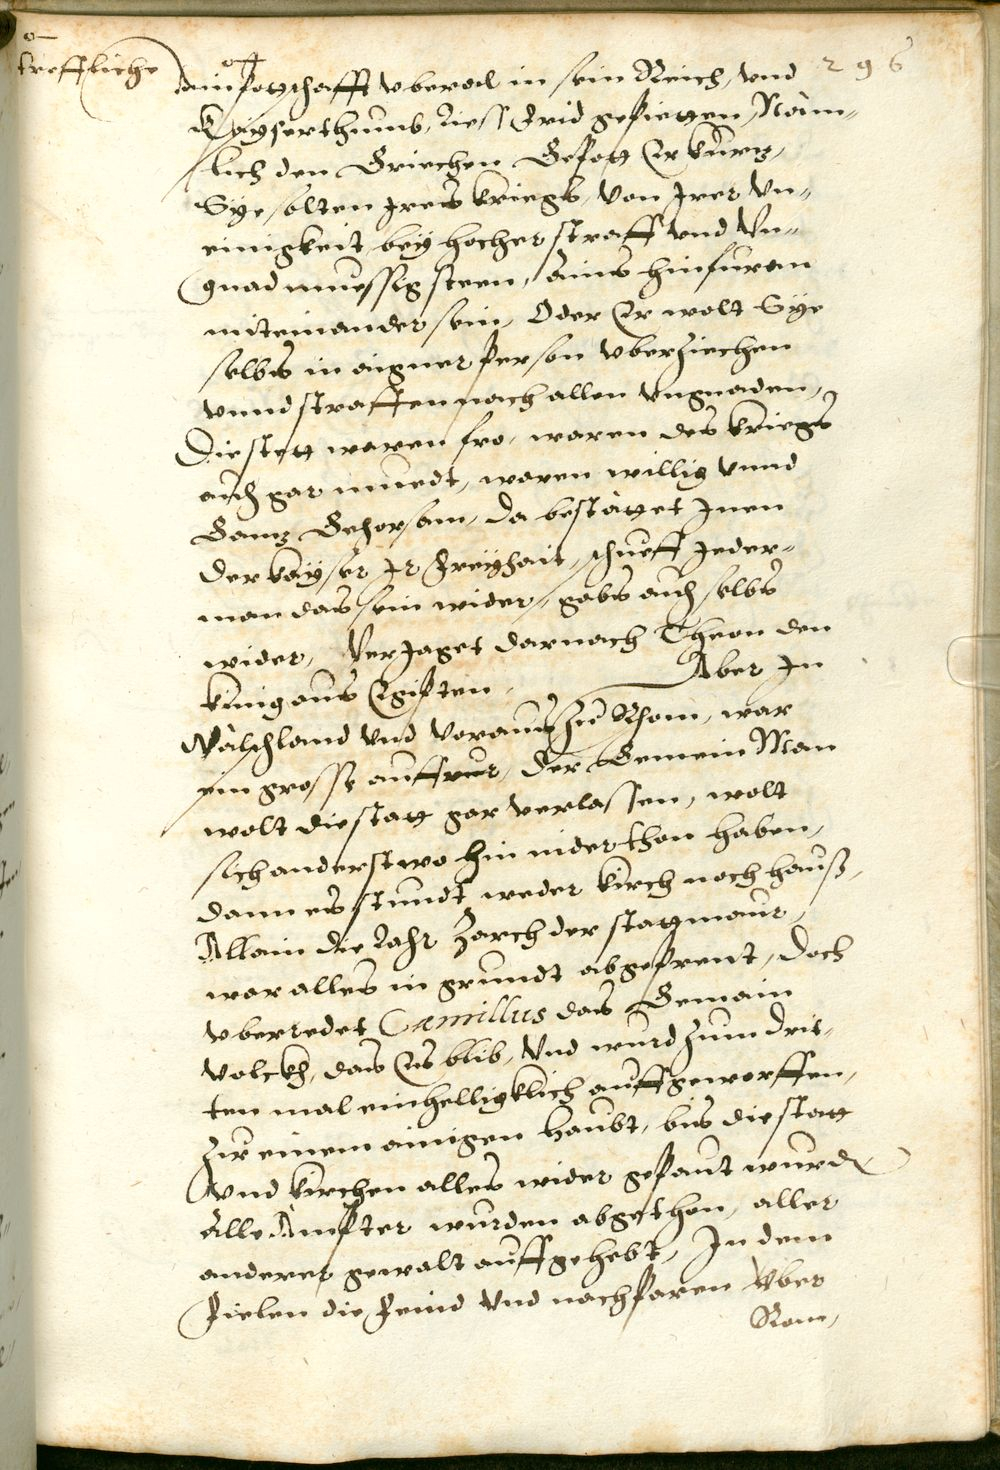 treffliche
296
ain potschafft vberal in sein Reich, vnd
Kayserthumb, Liess Frid gepietten, Nàm-
lich den Griechen Gepot Er kurtz,
Sye solten Jres kriegs, von Jrer Vn-
einigkeit bey hocher straff vnd Vn-
gnad muessig steen, ains hinfuran
miteinander sein, Oder Er wolt Sye
selbs in aigner Person vberziechen
vnnd straffen nach allen vngnaden,
Die stett waren fro, waren des kriegs
auch gar muedt, waren willig vnnd
Gantz Gehorsam, da bestàttet Jnen
der kayser Jr Freyhait, schueff Jeder-
man das sein wider, gabs auch selbs
wider, Verjaget darnach Theon den
künig aus Egipten. Aber In
Wàlschland vnd voraus zu Rhom, war
ein grosse auffrur, Der Gemein Man
wolt die statt gar verlassen, wolt
sich anderstwo hin nider thon haben,
dann es stundt weder kirch noch hauß,
Allain die Lähr Zarch der stattmaur,
war alles in grundt abgeprent, Doch
vberredet Camillus das Gemain
volckh, das Es blib, Vnd wurd zum drit-
ten mal einhelligklich auffgeworffen,
Zu einem ainigen Haubt, bis die statt
vnd kirchen alles wider gepaut wurd
Alle Àmpter wurden abgethon, aller
anderer gewalt auffgehebt, In dem
Fielen die Feind vnd nachparen Vber
Rom,